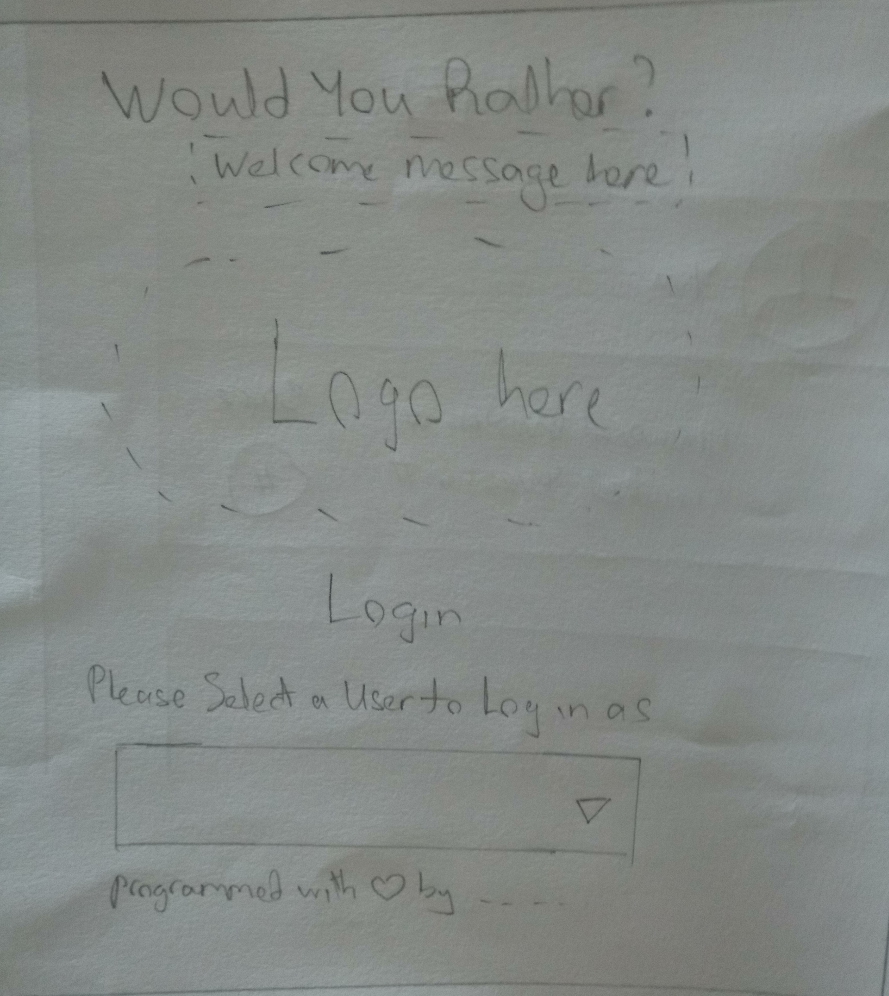 Would You Rather?
Welcome message here
Logo here
Login
Please Select a User to Log in as
programmed with ♡ by -----